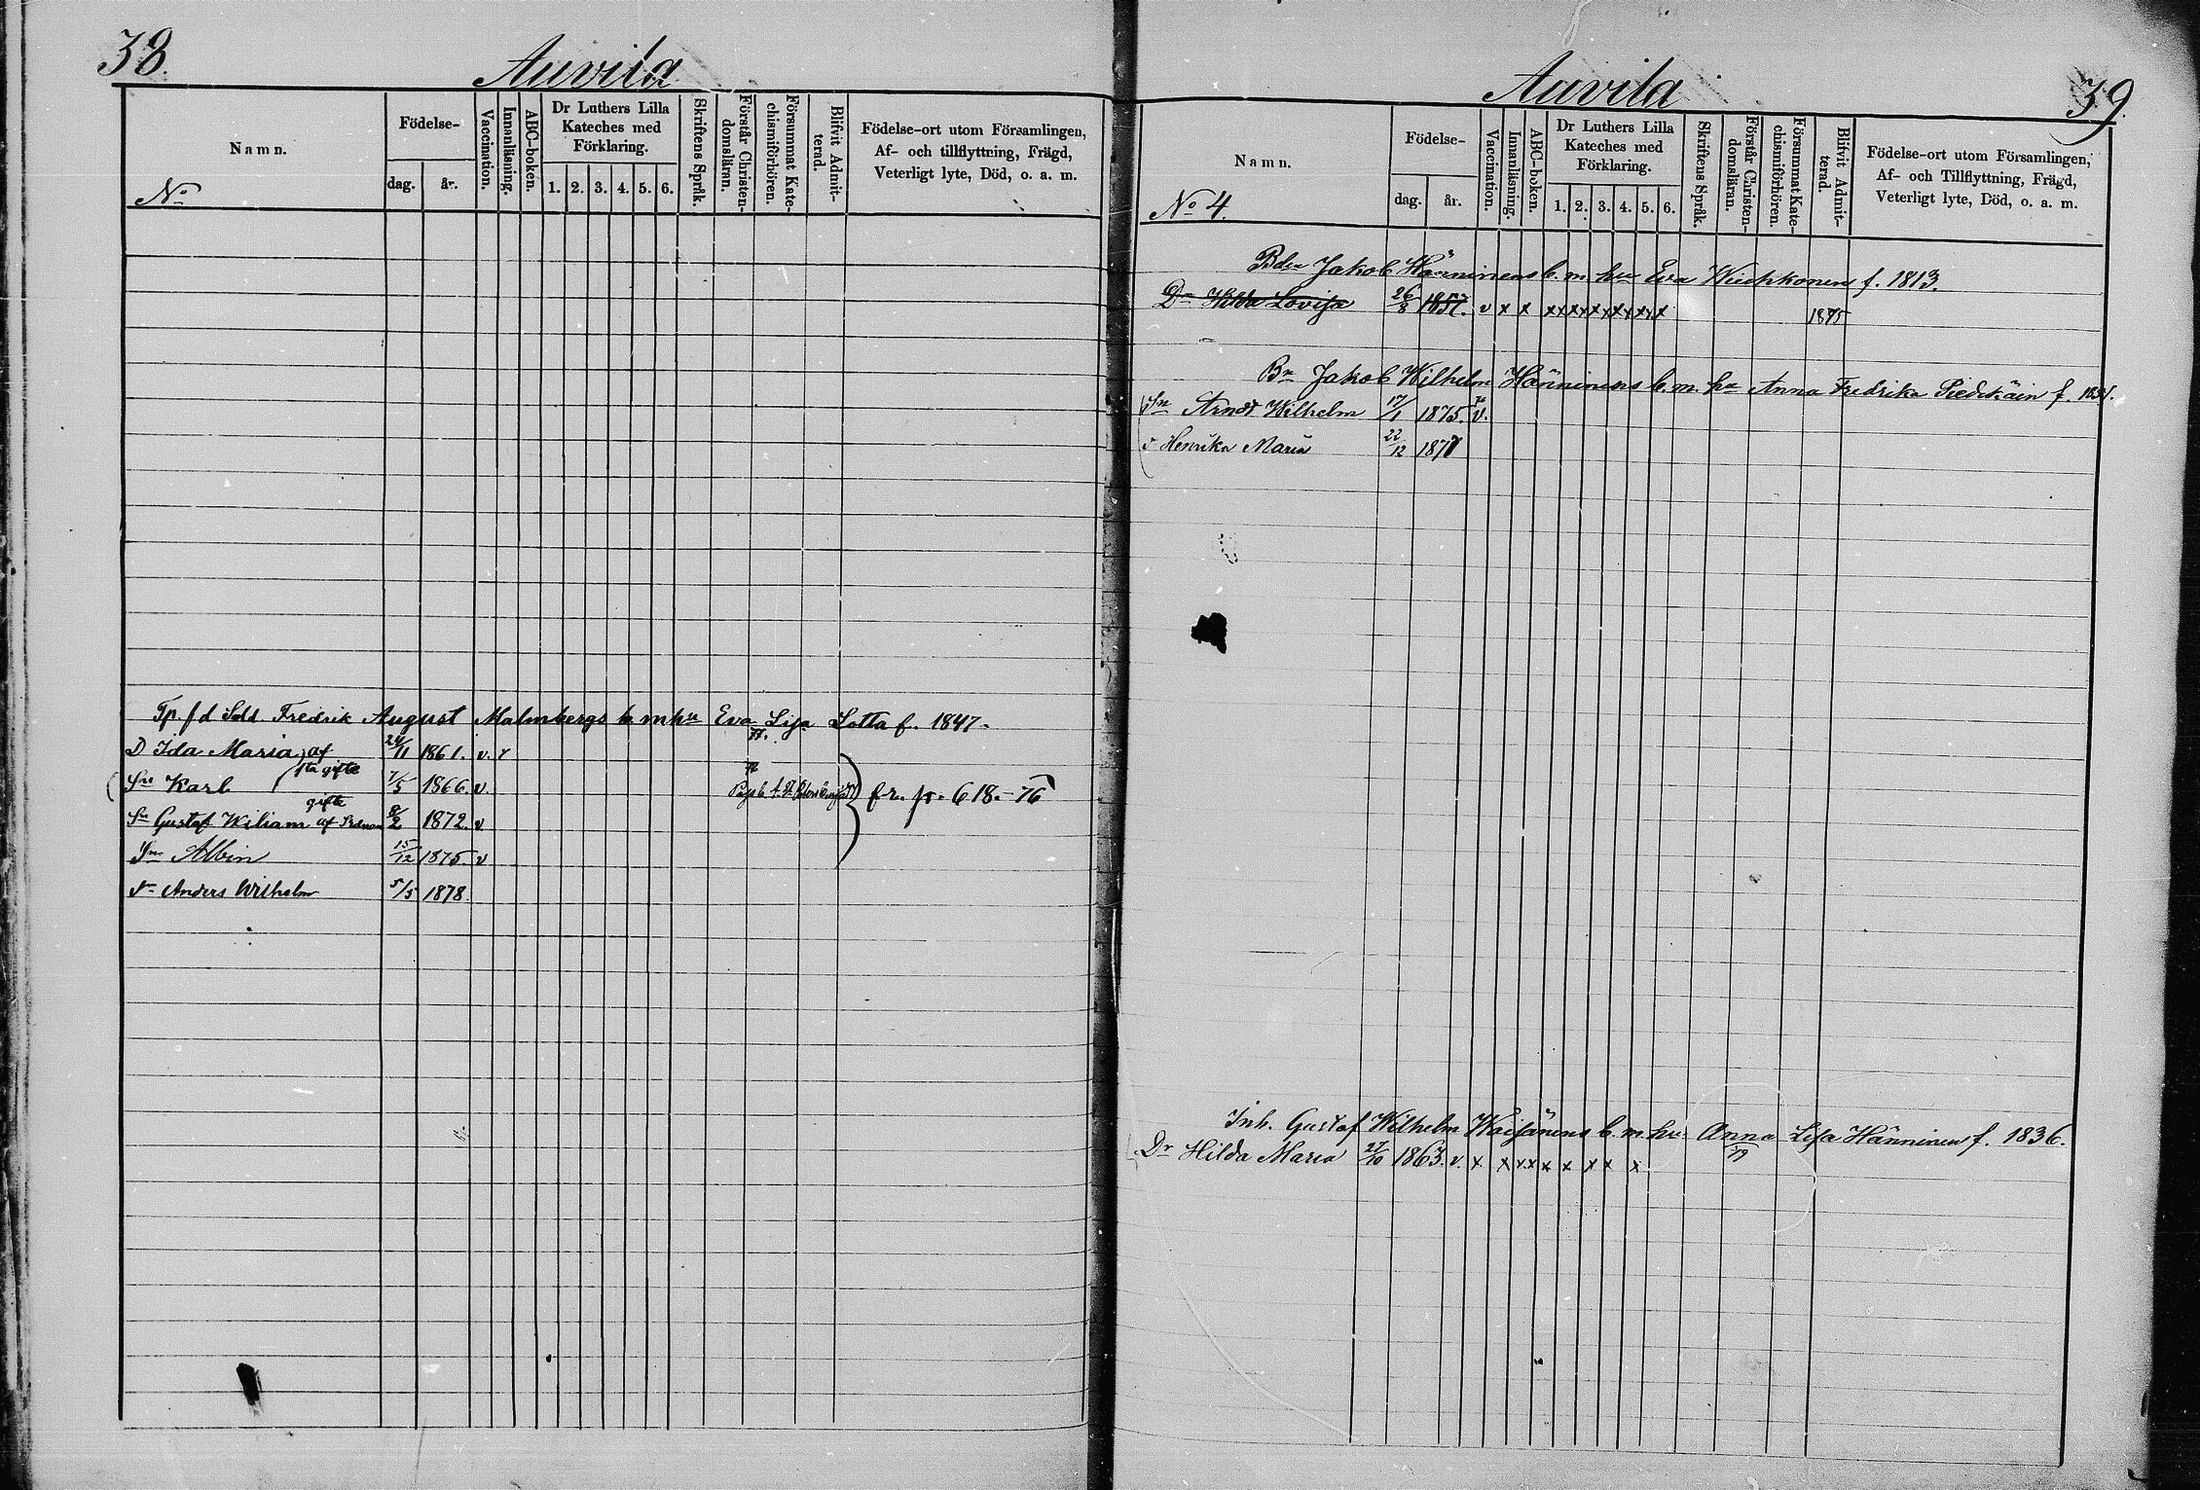 38.
Auvila
Namn.
No
Födelse-
dag.
år.
Vaccination.
Innanläsning.
ABC-boken.
Dr Luthers Lilla
Kateches med
Förklaring.
1. 2. 3. 4. 5. 6.
Skriftens Språk.
Förstår Christen-
domsläran.
Försummat Kate-
chismiförhören.
Blifvit Admit-
terad.
Födelse-ort utom Församlingen,
Af- och tillflyttning, Frägd,
Veterligt lyte, Död, o. a. m.
Tp. f d Sold Fredrik August Malmbergs b. m hu Eva Lisa Lotta f. 1847.
D Ida Maria af 24/11 1861. v. x
1sta gifte
Sn Karl 7/5 1866. v.
gifte
Sn Gustaf Wiliam af 8/2 1872. v
fr. p. 618.-76
Sn Albin 15/12 1875. v
Sn Anders Wilhelm 5/5 1878.
39.
Auvila
Namn.
No 4.
Födelse-
dag.
år.
Vaccination.
Innanläsning.
ABC-boken.
Dr Luthers Lilla
Kateches med
Förklaring.
1. 2. 3. 4. 5. 6.
Skriftens Språk.
Förstår Christen-
domsläran.
Försummat Kate-
chismiförhören.
Blifvit Admit-
terad.
Födelse-ort utom Församlingen,
Af- och Tillflyttning, Frägd,
Veterligt lyte, Död, o. a. m.
Jakob Hänninens b. m. hu Eva f. 1813.
Dr Hilda Lovisa 26/8 1857. v x x xx xx xx xx xx x 1875
Jakob Wilhelm Hänninens b. m. hu Anna Fredrika f.
Sn Arndt Wilhelm 17/1 1875. v.
Henrika Maria 22/12 1877
Inh. Gustaf Wilhelm Waisänens b. m. hu Anna Lisa Hänninen f. 1836.
Dr Hilda Maria 27/10 1863. v. x x x x x x x x x
79